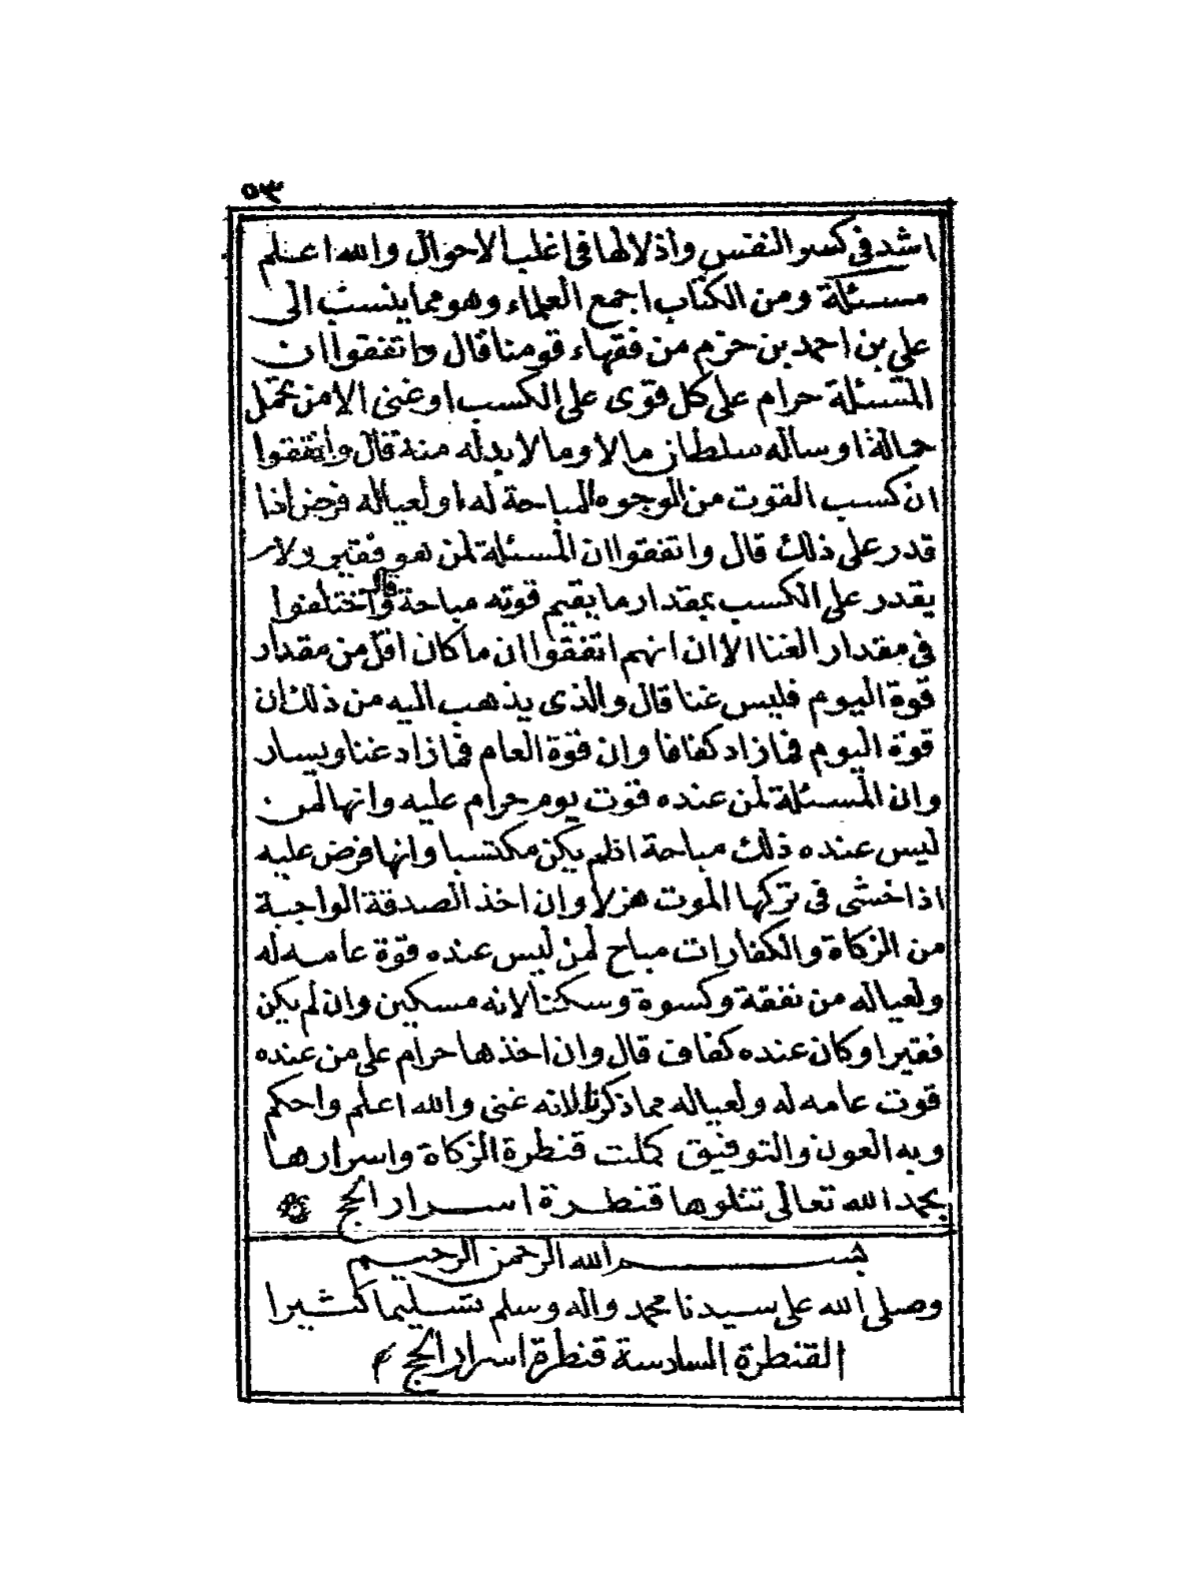 ٥٣
اشد في كسر النفس واذلالها في اغلب الاحوال والله اعلم
مسئلة ومن الكتاب اجمع العلماء وهو مما ينسب الى
علي بن احمد بن حزم من فقهاء قومنا قال واتفقوا ان
المسئلة حرام على كل قوى على الكسب او غنى الا من تحمل
حمالة او ساله سلطان مالا وما لا بد له منه قال واتفقوا
ان كسب القوت من الوجوه المباحة له او لعياله فرض اذا
قدر على ذلك قال واتفقوا ان المسئلة لمن هو فقير ولا
يقدر على الكسب بمقدار ما يقيم قوته مباحة قال واختلفوا
في مقدار الغنا الا ان انهم اتفقوا ان ما كان اقل من مقدار
قوة اليوم فليس غنا قال والذى يذهب اليه من ذلك ان
قوة اليوم فما زاد كفافا وان قوة العام فما زاد غنا ويسار
وان المسئلة لمن عنده قوت يوم حرام عليه وانها لمن
ليس عنده ذلك مباحة اذ لم يكن مكتسبا وانها فرض عليه
اذا خشى في تركها الموت هزلا وان اخذ الصدقة الواجبة
من الزكاة والكفارات مباح لمن ليس عنده قوة عامه له
ولعياله من نفقة وكسوة وسكنا لانه مسكين وان لم يكن
فقيرا وكان عنده كفاف قال وان اخذها حرام على من عنده
قوت عامه له ولعياله مما ذكرنا لانه غنى والله اعلم واحكم
وبه العون والتوفيق كملت قنطرة الزكاة واسرارها
بحمد الله تعالى تتلوها قنطرة اسرار الحج
بسم الله الرحمن الرحيم
وصلى الله على سيدنا محمد واله وسلم تسليما كثيرا
القنطرة السادسة قنطرة اسرار الحج